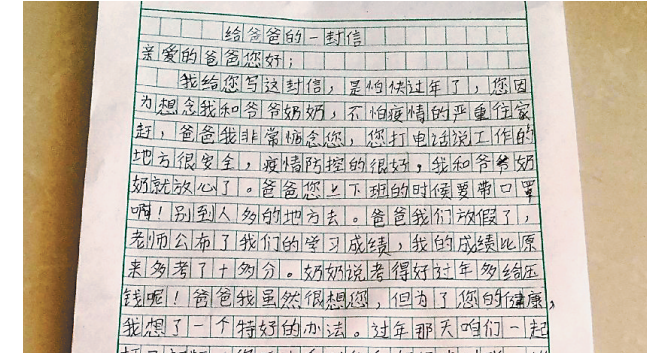 给爸爸的一封信
亲爱的爸爸您好;
我给您写这封信,是怕快过年了,您因
为想念我和爷爷奶奶,不怕疫情的严重往家
赶,爸爸我非常惦念您,您打电话说工作的
地方很安全,疫情防控的很好,我和爷爷奶
奶就放心了。爸爸您上下班的时候要带口罩
啊!别到人多的地方去。爸爸我们放假了,
老师公布了我们的学习成绩,我的成绩比原
来多考了十多分。奶奶说考得好过年多给压
钱呢!爸爸我虽然很想您,但为了您的健康,
我想了一个特好的办法。过年那天咱们一起